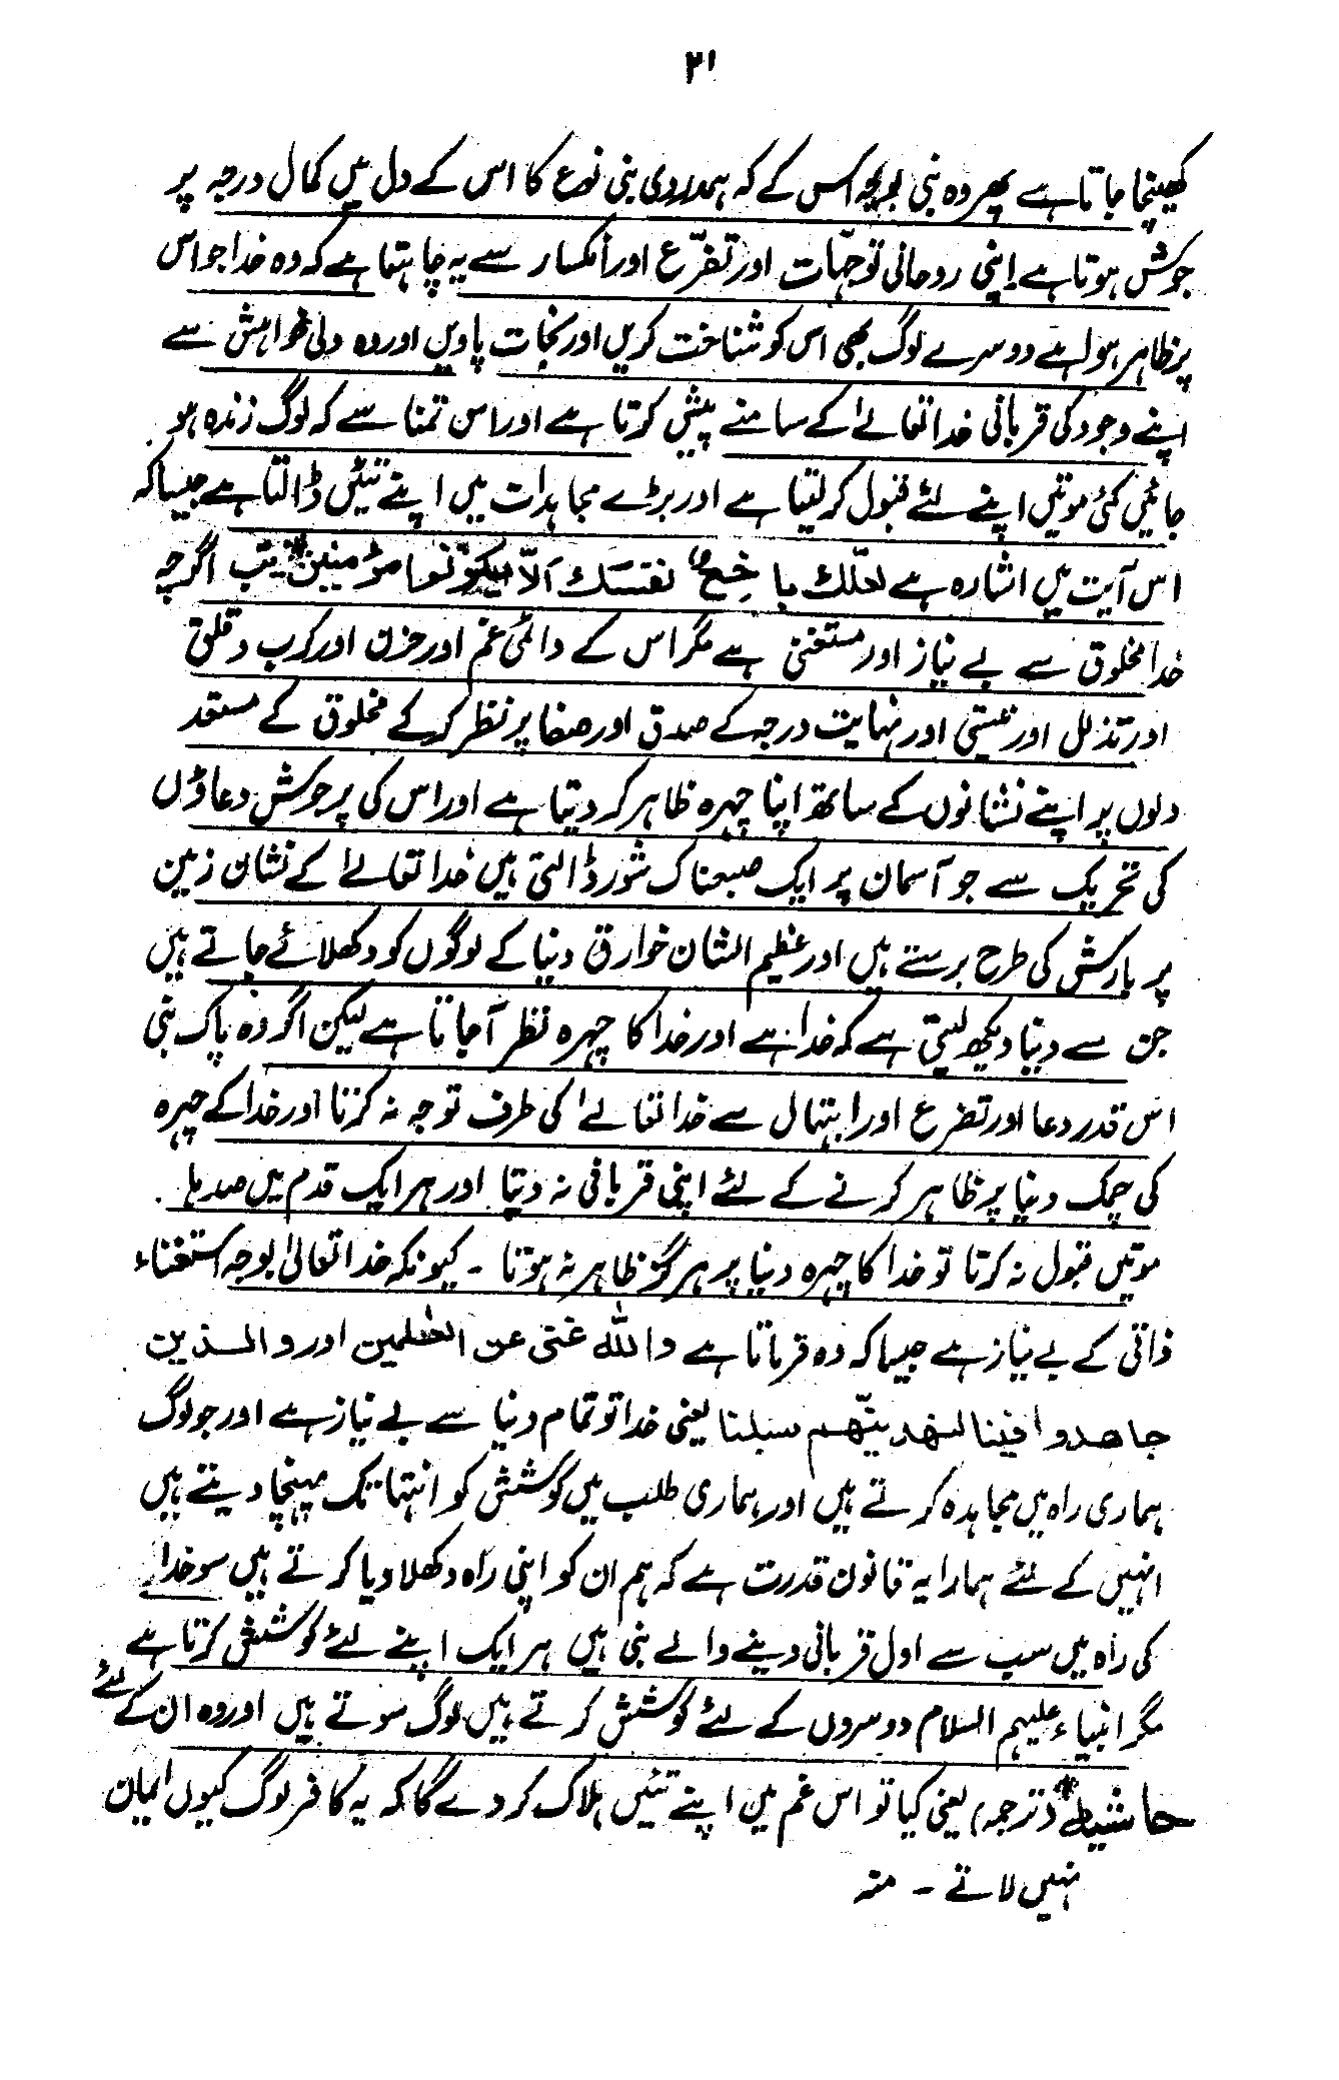 ۲۱
کھینچا جاتا ہے پھر وہ نبی بوجہ اس کے کہ ہمدردی بنی نوع کا اس کے دل میں کمال درجہ پر
جوش ہوتا ہے اپنی روحانی توجّہات اور تضرّع اور انکسار سے یہ چاہتا ہے کہ وہ خدا جو اس
پر ظاہر ہوا ہے دوسرے لوگ بھی اس کو شناخت کریں اور نجات پاویں اور وہ دلی خواہش سے
اپنے وجود کی قربانی خدا تعالےٰ کے سامنے پیش کرتا ہے اور اس تمنا سے کہ لوگ زندہ ہو
جائیں کئی موتیں اپنے لئے قبول کر لیتا ہے اور بڑے مجاہدات میں اپنے تئیں ڈالتا ہے جیسا کہ
اس آیت میں اشارہ ہے لعلّک باخعٌ نفسک الّا یکونوا مؤمنین* تب اگرچہ
خدا مخلوق سے بے نیاز اور مستغنی ہے مگر اس کے دائمی غم اور حزن اور کرب و قلق
اور تذلل اور نیستی اور نہایت درجہ کے صدق اور صفا پر نظر کر کے مخلوق کے مستعد
دلوں پر اپنے نشانوں کے ساتھ اپنا چہرہ ظاہر کر دیتا ہے اور اس کی پرجوش دعاؤں
کی تحریک سے جو آسمان پر ایک صعبناک شور ڈالتی ہیں خدا تعالےٰ کے نشان زمین
پر بارش کی طرح برستے ہیں اور عظیم الشان خوارق دنیا کے لوگوں کو دکھلائے جاتے ہیں
جن سے دنیا دیکھ لیتی ہے کہ خدا ہے اور خدا کا چہرہ نظر آ جاتا ہے لیکن اگر وہ پاک نبی
اس قدر دعا اور تضرع اور ابتہال سے خدا تعالےٰ کی طرف توجہ نہ کرتا اور خدا کے چہرہ
کی چمک دنیا پر ظاہر کرنے کے لئے اپنی قربانی نہ دیتا اور ہر ایک قدم میں صدہا
موتیں قبول نہ کرتا تو خدا کا چہرہ دنیا پر ہرگز ظاہر نہ ہوتا ۔ کیونکہ خدا تعالیٰ بوجہ استغناء
ذاتی کے بے نیاز ہے جیسا کہ وہ فرماتا ہے واللہ غنی عن العٰلمین اور والذین
جاھدوا فینا لنھدینّھم سبلنا یعنی خدا تو تمام دنیا سے بے نیاز ہے اور جو لوگ
ہماری راہ میں مجاہدہ کرتے ہیں اور ہماری طلب میں کوشش کو انتہا تک پہنچا دیتے ہیں
انہیں کے لئے ہمارا یہ قانون قدرت ہے کہ ہم ان کو اپنی راہ دکھلا دیا کرتے ہیں سو خدا
کی راہ میں سب سے اول قربانی دینے والے نبی ہیں ہر ایک اپنے لئے کوشش کرتا ہے
مگر انبیاء علیہم السلام دوسروں کے لئے کوشش کرتے ہیں لوگ سوتے ہیں اور وہ ان کے لئے
حاشیہ* (ترجمہ) یعنی کیا تو اس غم میں اپنے تئیں ہلاک کر دے گا کہ یہ کافر لوگ کیوں ایمان
نہیں لاتے ۔ منہ